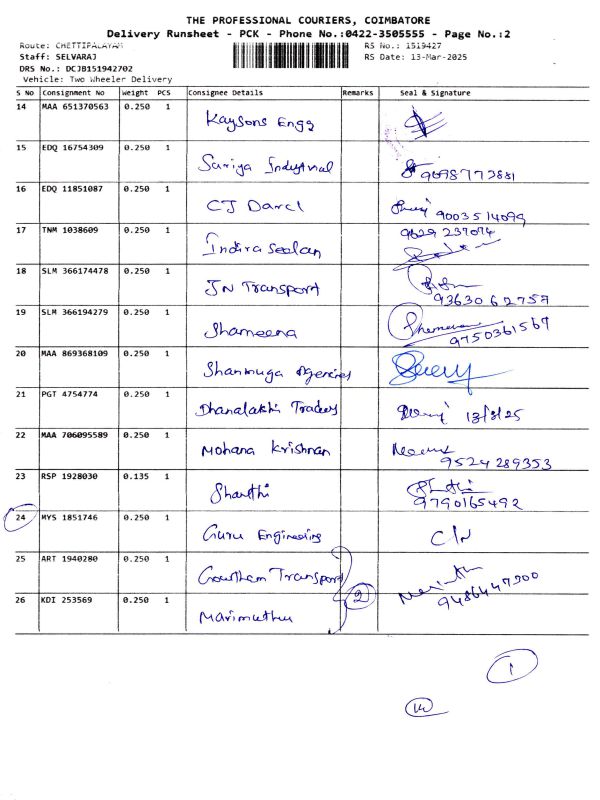 THE PROFESSIONAL COURIERS, COIMBATORE
Delivery Runsheet - PCK - Phone No.:0422-3505555 - Page No.:2
Route: CHETTIPALAYAM
RS No.: 1519427
Staff: SELVARAJ
RS Date: 13-Mar-2025
DRS No.: DCJB151942702
Vehicle: Two Wheeler Delivery
S No Consignment No Weight PCS Consignee Details Remarks Seal & Signature
14 MAA 651370563 0.250 1 Kaysons Engg
15 EDQ 16754309 0.250 1 Suriya Industrial 9698772881
16 EDQ 11851087 0.250 1 CJ Darcl 9003514099
17 TNM 1038609 0.250 1 Indira Seelan 9629 237074
18 SLM 366174478 0.250 1 JN Transport 9363062757
19 SLM 366194279 0.250 1 Shameena 9750361567
20 MAA 869368109 0.250 1 Shanmuga Agencies
21 PGT 4754774 0.250 1 Dhanalakhi Traders 13/3/25
22 MAA 706095589 0.250 1 Mohana Krishnan 9524289353
23 RSP 1928030 0.135 1 Shanthi 9790165492
24 MYS 1851746 0.250 1 Guru Engineering C/N
25 ART 1940280 0.250 1 Gowthem Transport 9486447300
26 KDI 253569 0.250 1 Marimuthu 2
1